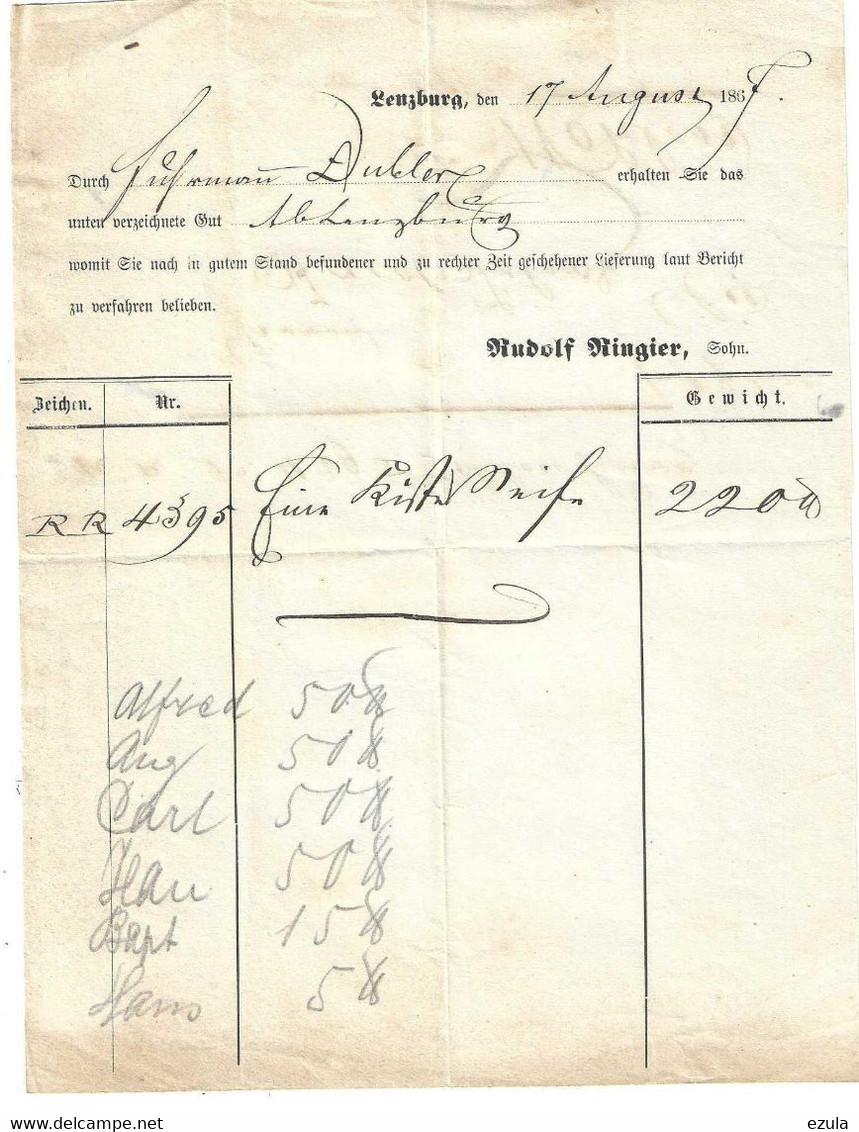 Lenzburg, den 17 August 1867.
Durch Fuhrmann Dubler erhalten Sie das
unten verzeichnete Gut Ab Lenzburg
womit Sie nach in gutem Stand befundener und zu rechter Zeit geschehener Lieferung laut Bericht
zu verfahren belieben.
Rudolf Ringier, Sohn.
Zeichen. Nr. Gewicht.
RR 4395 Eine Kiste Seife 220 ℔
Alfred 50 ℔
Aug 50 ℔
Carl 50 ℔
50 ℔
Bapt 15 ℔
Hans 5 ℔
ezula